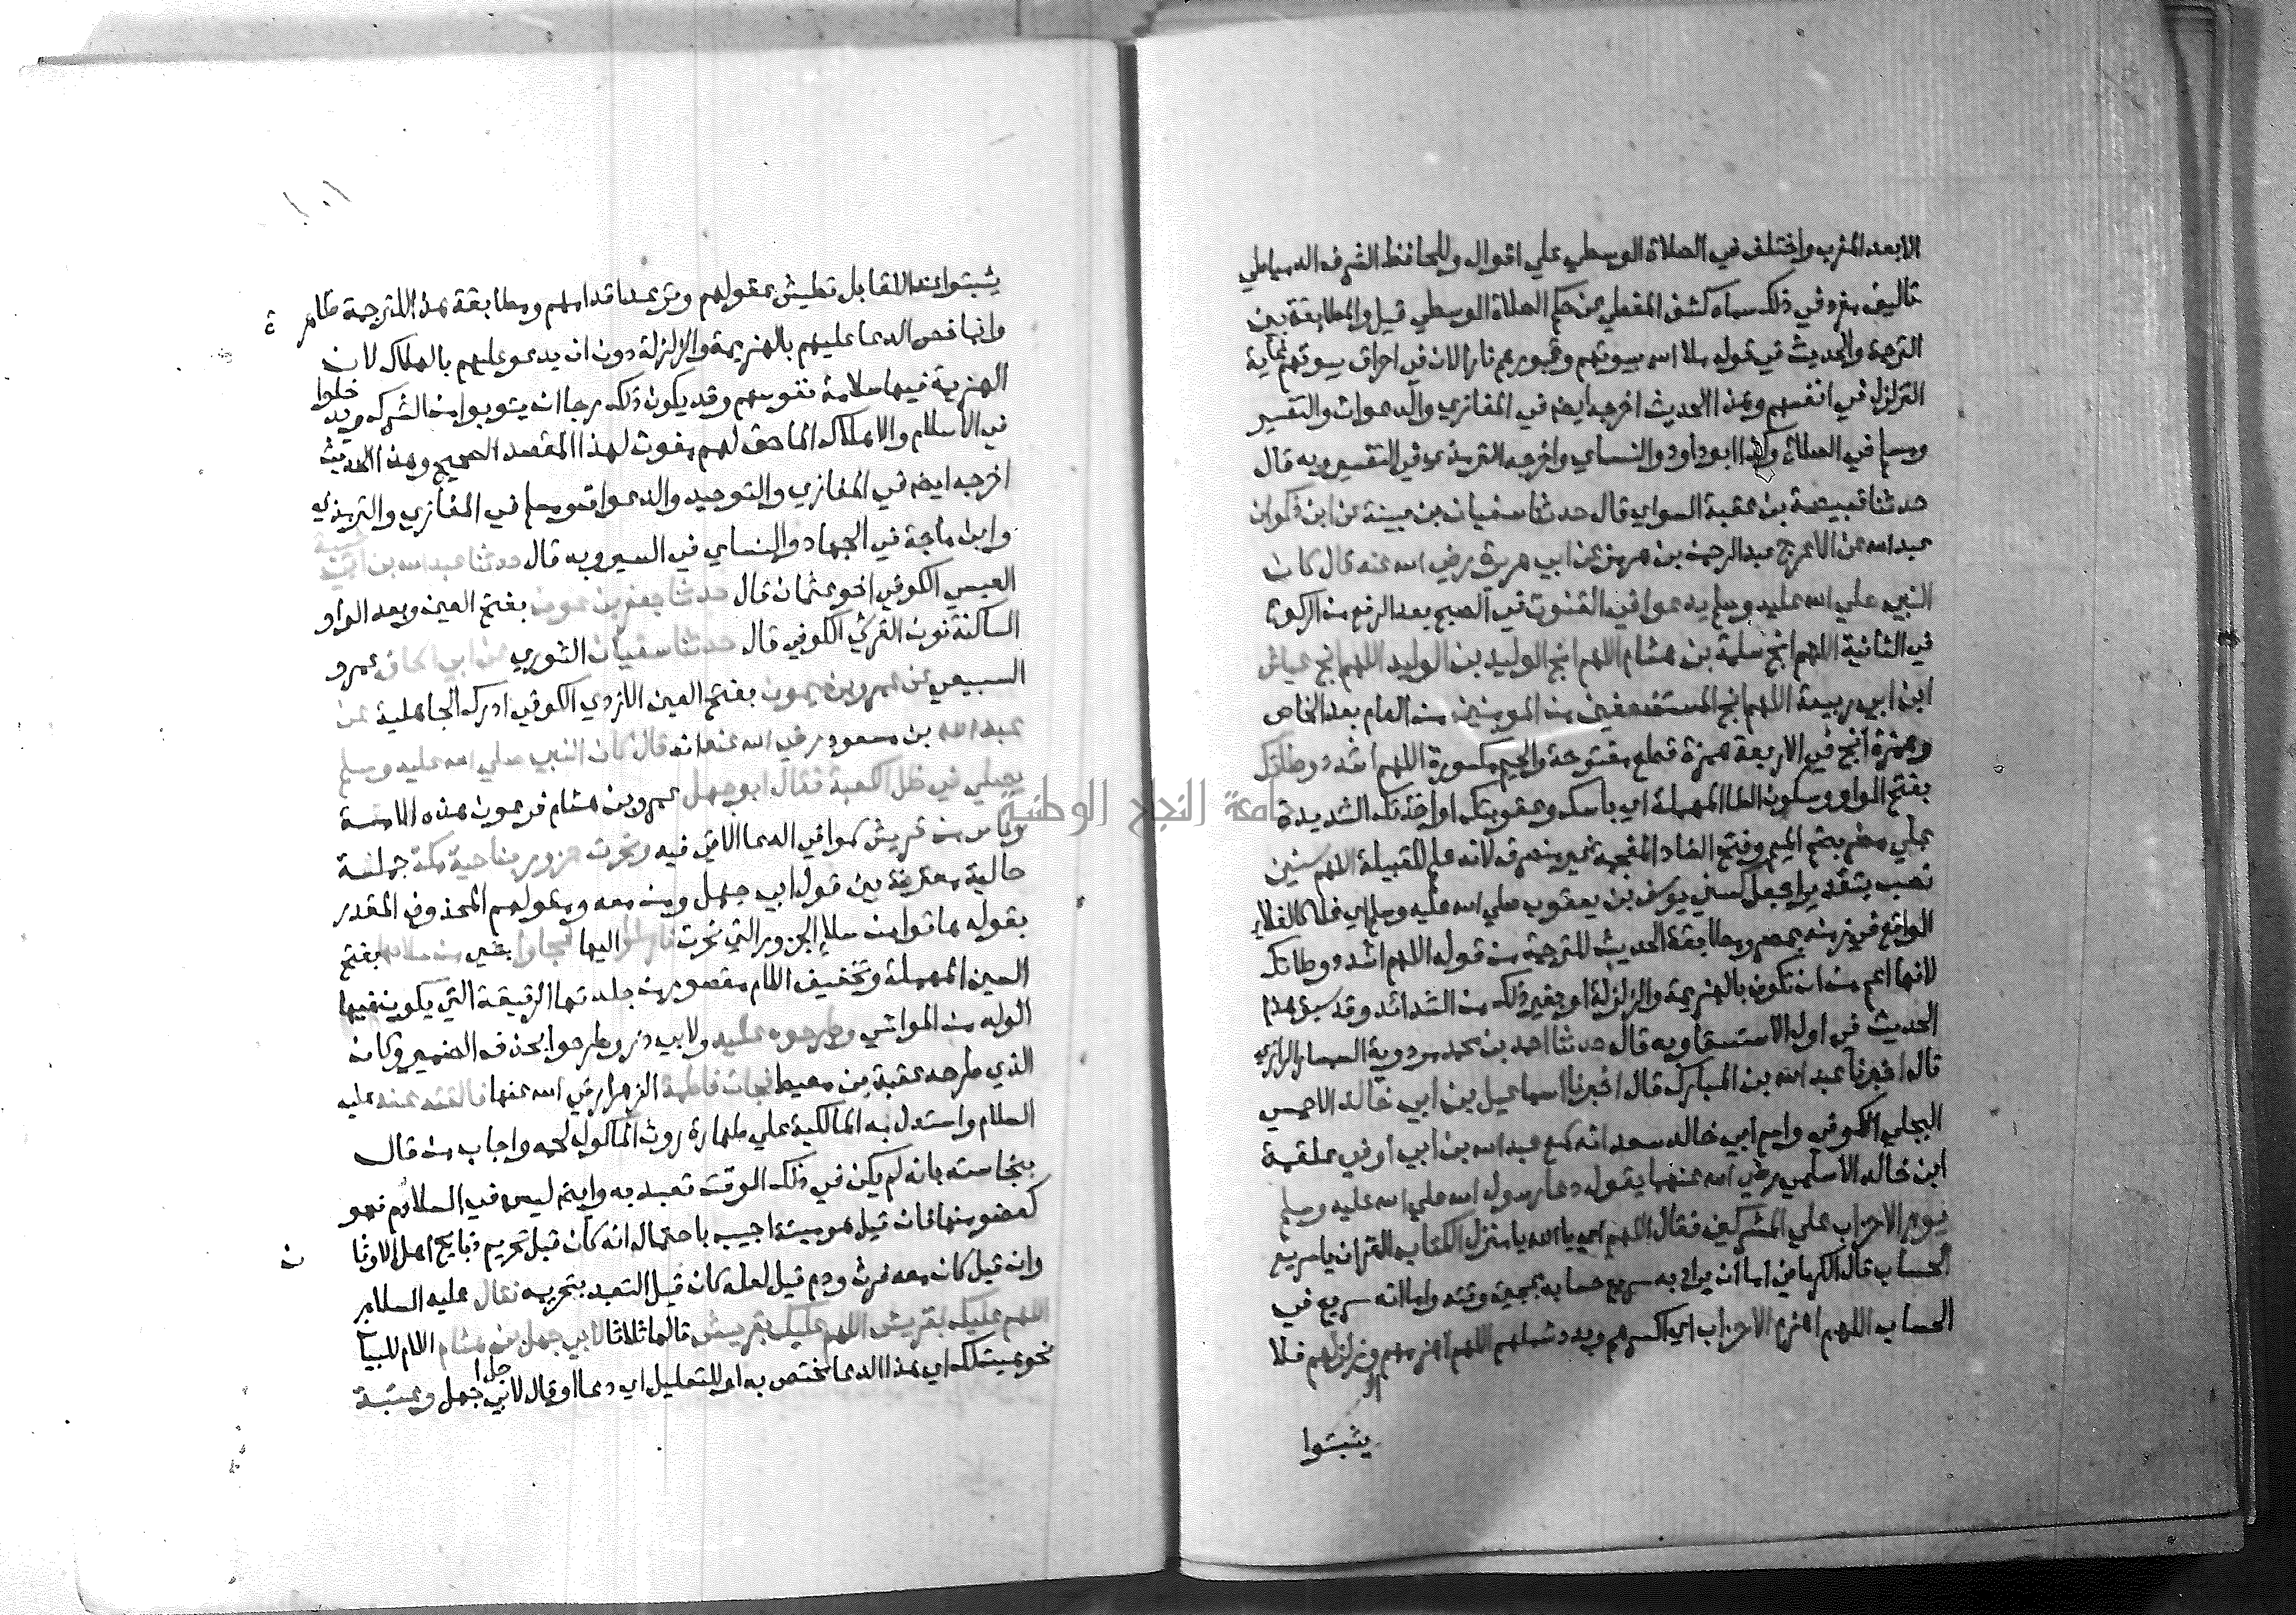 الا بعد المغرب واختلف في الصلاة الوسطي علي اقوال وللحافظ الشرف الدمياطي
تاليف مفرد في ذلك سماه كشف المغطي عن حكم الصلاة الوسطي قيل والمطابقة بين
الترجمة والحديث في قوله ملا الله بيوتهم وقبورهم نارا لان في احراق بيوتهم غاية
التزلزل في انفسهم وهذا الحديث اخرجه ايضا في المغازي والدعوات والتفسير
ومسلم في الصلاة وكذا ابو داود والنساي واخرجه الترمذي في التفسير وبه قال
حدثنا قبيصة بن عقبة السواي قال حدثنا سفيان بن عيينة عن ابن ذكوان
عبد الله عن الاعرج عبد الرحمن بن هرمز عن ابي هريرة رضي الله عنه قال كان
النبي صلي الله عليه وسلم يدعوا في القنوت في الصبح بعد الرفع من الركوع
في الثانية اللهم انج سلمة بن هشام اللهم انج الوليد بن الوليد اللهم انج عياش
ابن ابي ربيعة اللهم انج المستضعفين من المومنين من العام بعد الخاص
وهمزة انج في الاربعة همزة قطع مفتوحة والجيم مكسورة اللهم اشدد وطاتك
بفتح الواو وسكون الطا المهملة اي باسك وعقوبتك او اخذتك الشديدة
علي مضر بضم الميم وفتح الضاد المعجمة غير منصرف لانه علم للقبيلة اللهم سنين
نصب بتقدير اجعل كسني يوسف بن يعقوب صلي الله عليه وسلم اي غلا كالغلا
الواقع في زمنه بمصر ومطابقة الحديث للترجمة من قوله اللهم اشدد وطاتك
لانها اعم من ان تكون بالهزيمة والزلزلة او بغير ذلك من الشدائد وقد سبق هذا
الحديث في اول الاستسقا وبه قال حدثنا احمد بن محمد مردوية السمسار الرازي
قال اخبرنا عبد الله بن المبارك قال اخبرنا اسماعيل بن ابي خالد الاحمسي
البجلي الكوفي واسم ابي خالد سعد انه سمع عبد الله بن ابي اوفي علقمة
ابن خالد الاسلمي رضي الله عنهما يقول دعا رسول الله صلي الله عليه وسلم
يوم الاحزاب علي المشركين فقال اللهم اي يا الله يا منزل الكتاب القران يا سريع
الحساب قال الكرماني اما ان يراد به سريع حسابه بمجي وقته واما انه سريع في
الحساب اللهم اهزم الاحزاب اي اكسرهم وبدد شملهم اللهم اهزمهم وزلزلهم فلا
يثبتوا
١٠١
يثبتوا عند اللقا بل تطيش عقولهم وترعد اقدامهم ومطابقة هذا للترجمة ظاهر
ة
وانما خص الدعا عليهم بالهزيمة والزلزلة دون ان يدعو عليهم بالهلاك لان
الهزيمة فيها سلامة نفوسهم وقد يكون ذلك رجا ان يتوبوا من الشرك ويدخلوا
في الاسلام والاهلاك الماحق لهم مفوت لهذا المقصد الصحيح وهذا الحديث
اخرجه ايضا في المغازي والتوحيد والدعوات ومسلم في المغازي والترمذي
وابن ماجة في الجهاد والنساي في السير وبه قال حدثنا عبد الله بن ابي شيبة
العبسي الكوفي اخو عثمان قال حدثنا جعفر بن عون بفتح العين وبعد الواو
الساكنة نون القرشي الكوفي قال حدثنا سفيان الثوري عن ابي اسحاق عمرو
السبيعي عن عمرو بن ميمون بفتح العين الازدي الكوفي ادرك الجاهلية عن
عبد الله بن مسعود رضي الله عنه انه قال كان النبي صلي الله عليه وسلم
يصلي في ظل الكعبة فقال ابو جهل عمرو بن هشام فرعون هذه الامة
وناس من قريش سموا في الدعا الاتي فيه ونحرت جزور بناحية مكة جملة
حالية معترضة بين قول ابي جهل ومن معه ومقولهم المحذوف المقدر
بقوله هاتوا من سلا الجزور التي نحرت فارسلوا اليها فجاوا بفتح من سلاها بفتح
السين المهملة وتخفيف اللام مقصور من جلدتها الرقيقة التي يكون فيها
الولد من المواشي وطرحوه عليه ولابي ذر وطرحوا بحذف الضمير وكان
الذي طرحه عقبة بن معيط فجات فاطمة الزهرا رضي الله عنها فالقته عنه عليه
السلام واستدل به المالكية علي طهارة روث الماكول لحمه واجاب من قال
بنجاسته بانه لم يكن في ذلك الوقت تعبد به وايضا ليس في السلا دم فهو
كعضو منها فان قيل هو ميتة اجيب باحتمال انه كان قبل تحريم ذبايح اهل الاوثا
ن
وان قيل كان معه فرث ودم قيل لعله كان قبل التعبد بتحريمه فقال عليه السلام
اللهم عليك بقريش اللهم عليك بقريش قالها ثلاثا لابي جهل بن هشام اللام للبيا
نحو هيت لك اي هذا الدعا مختص به او للتعليل اي دعا او قال لاجل ابي جهل وعتبة
جامعة النجاح الوطنية